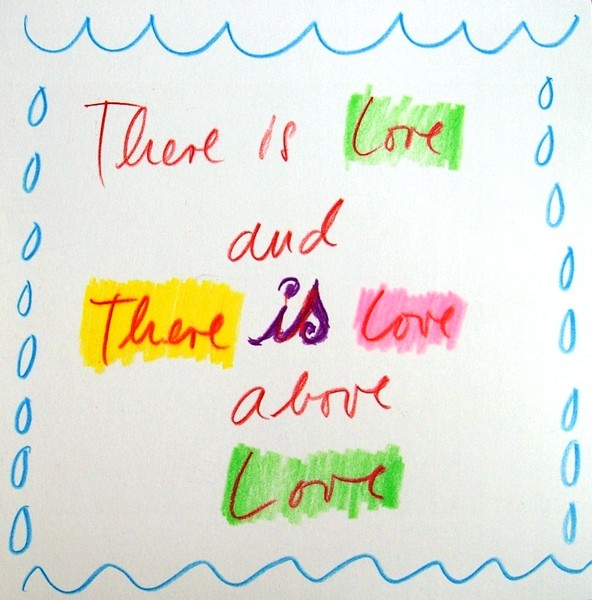 There is Love
and
There is Love
above
Love